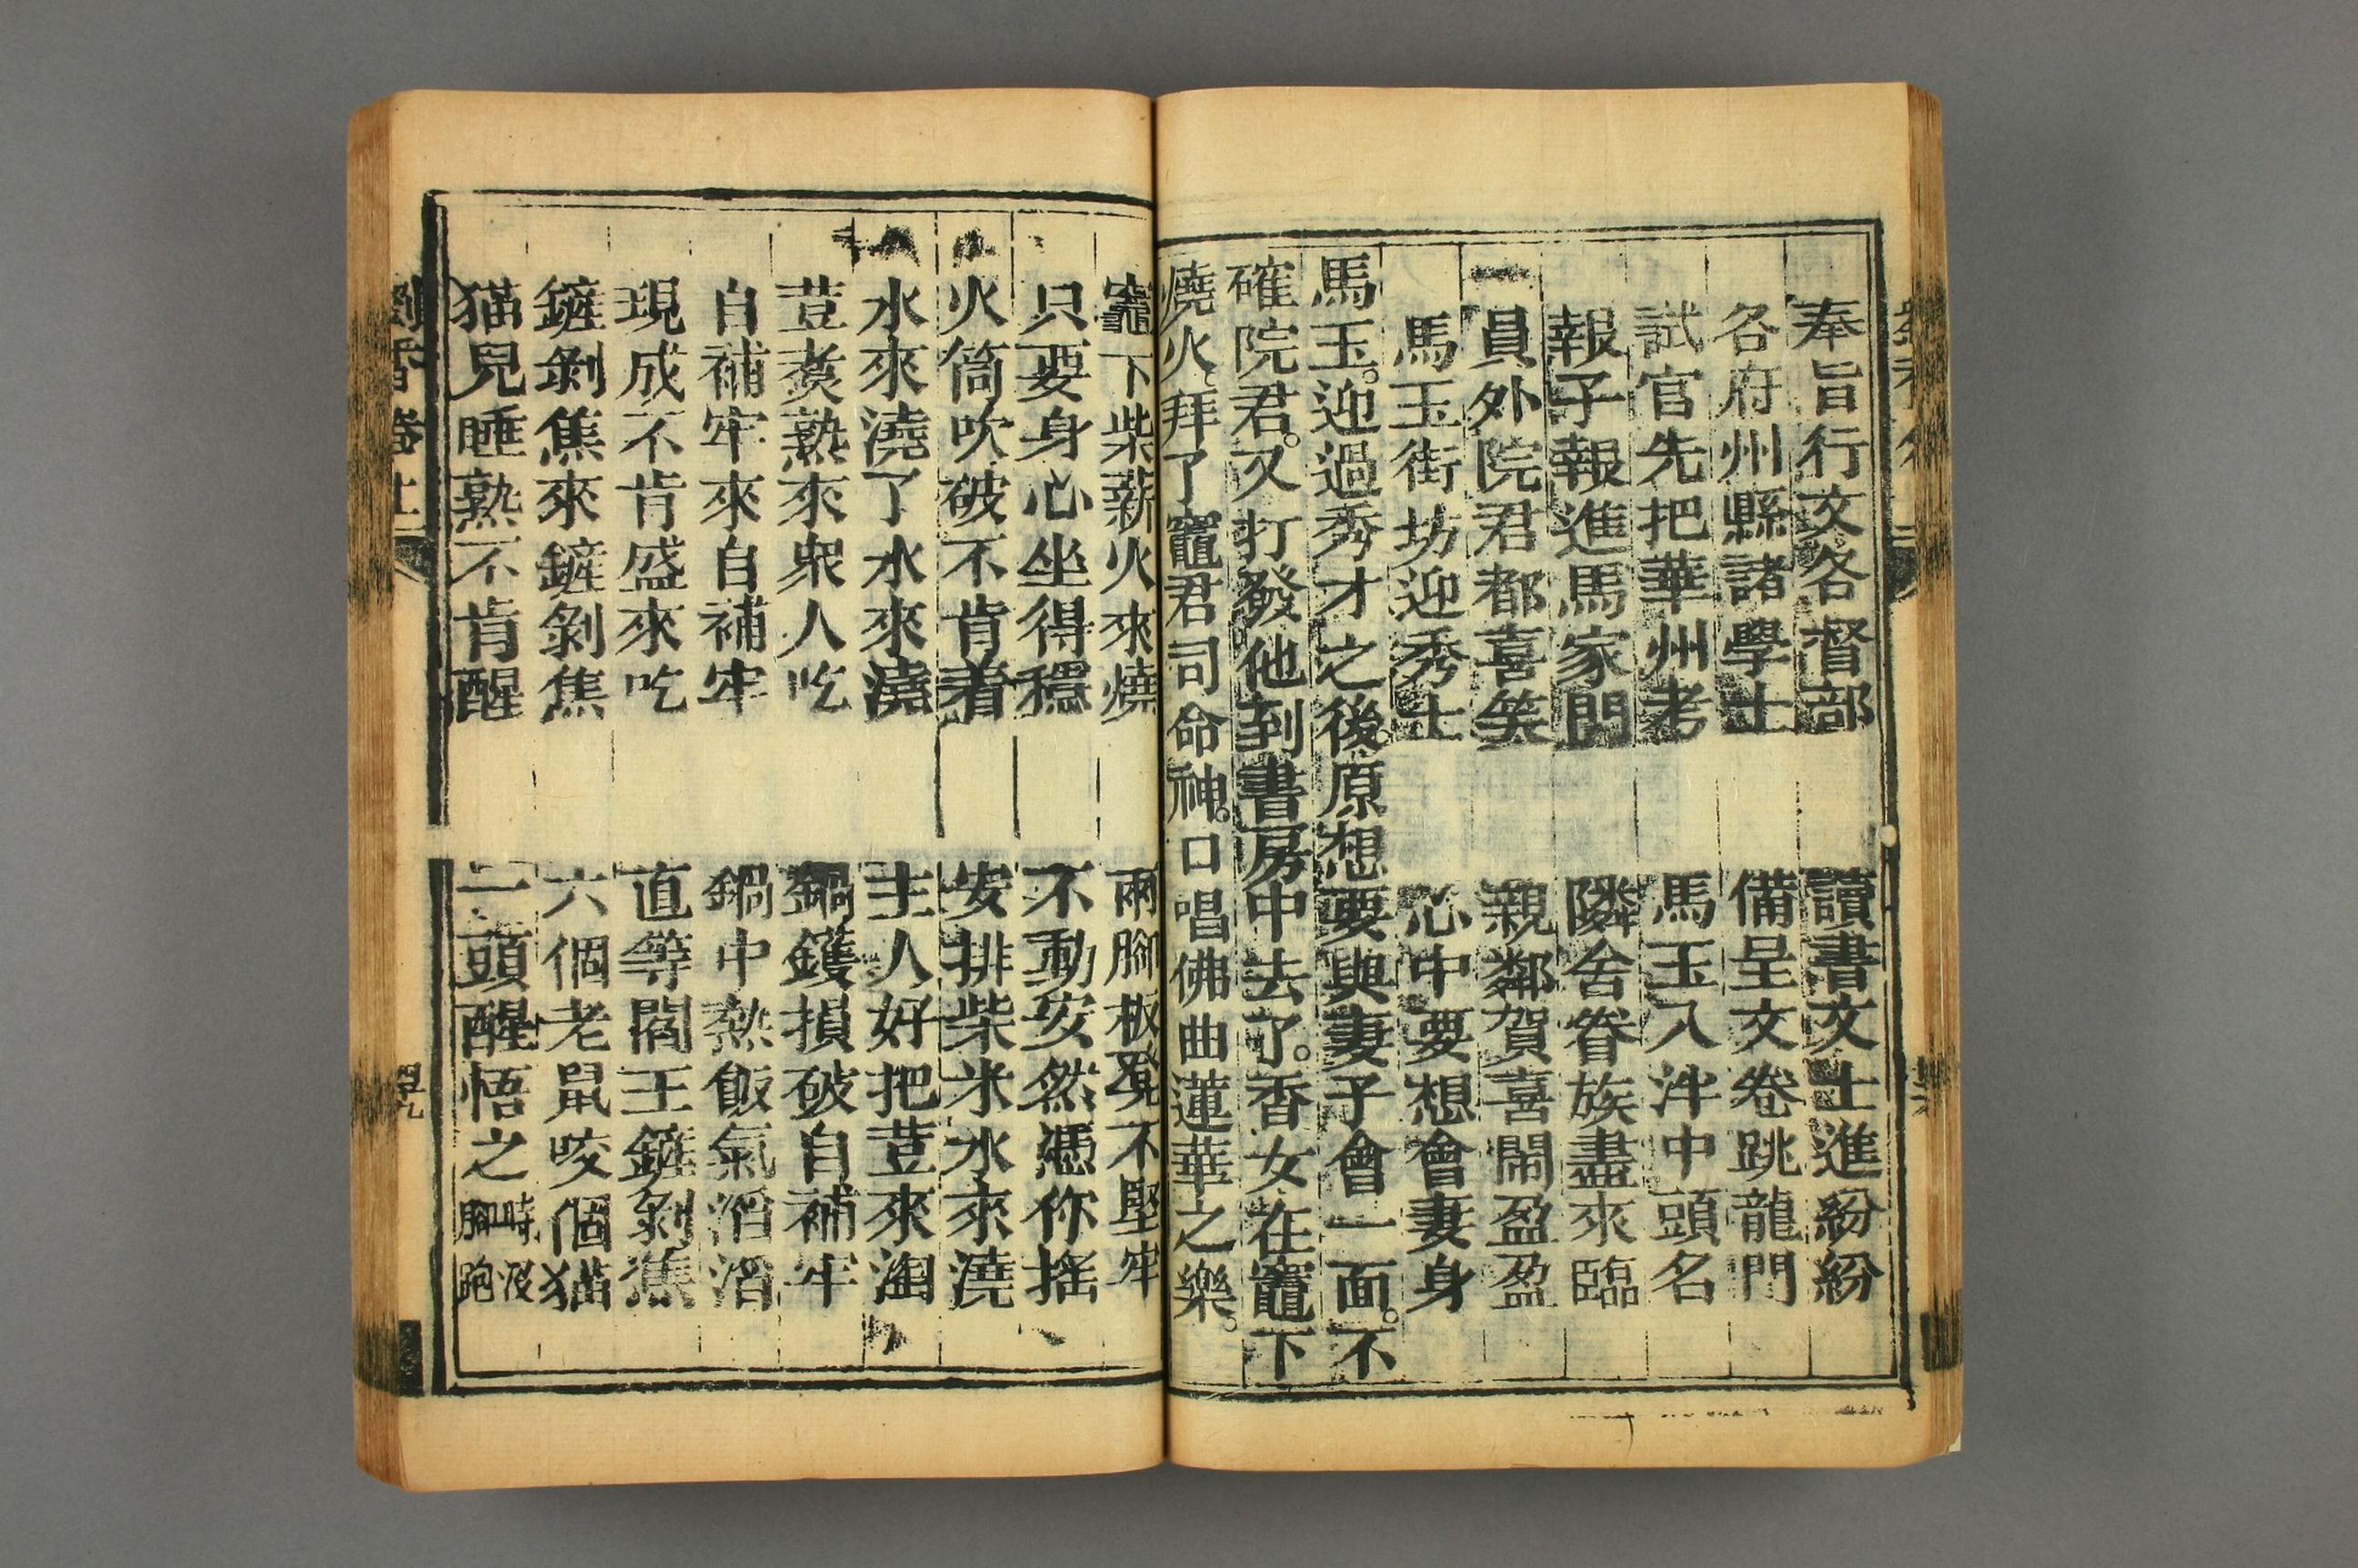 奉旨行文各督部　讀書文士進紛紛
各府州縣諸學士　備呈文卷跳龍門
試官先把華州考　馬玉入泮中頭名
報子報進馬家門　隣舍眷族盡來臨
員外院君都喜笑　親鄰賀喜鬧盈盈
馬玉街坊迎秀士　心中要想會妻身
馬玉。迎過秀才之後。原想要與妻子會一面。不
確院君。又打發他到書房中去了。香女在竈下
燒火。拜了竈君司命神。口唱佛曲蓮華之樂。
竈下柴薪火來燒　兩腳板凳不堅牢
只要身心坐得穩　不動安然憑你搖
火筒吹破不肯着　安排柴米水來澆
水來澆了水來澆　主人好把荳來淘
荳𤎅熟來衆人吃　鍋鑊損破自補牢
自補牢來自補牢　鍋中熱飯氣滔滔
現成不肯盛來吃　直等閻王鏟剝蕉
鏟剝焦來鏟剝焦　六個老鼠咬個猫
猫兒睡熟不肯醒　一頭醒悟之時沒腳跑
劉香卷上